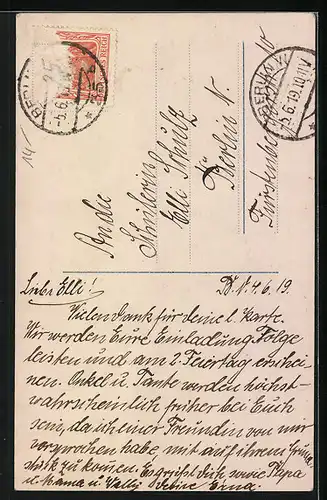 BERLIN
-5.6.19
DEUTSCHES REICH
BERLIN N
5.6.19.10-11V
An die
Schülerin
Elli Schulz
Berlin N.
10
Liebe Elli!
B. N. 4.6.19.
Vielen Dank für deine l. Karte.
Wir werden Eure Einladung Folge
leisten und am 2. Feiertag erschei-
nen. Onkel u. Tante werden höchst-
wahrscheinlich früher bei Euch
sein, da ich einer Freundin von mir
versprochen habe, mit auf ihrem
zu kommen. Es grüßt Dich sowie Papa
u. Mama u. Willy Deine Erna.